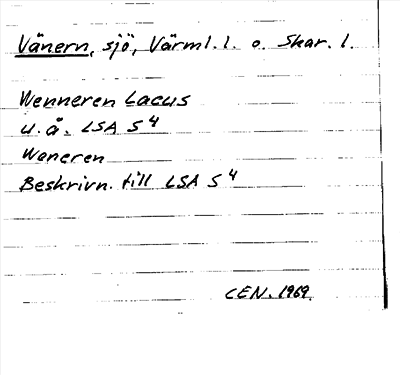 Vänern, sjö, Värml. l. o. Skar. l.
Wenneren Lacus
u.å. LSA S 4
Waneren
Beskrivn. till LSA S 4
CEN. 1969.